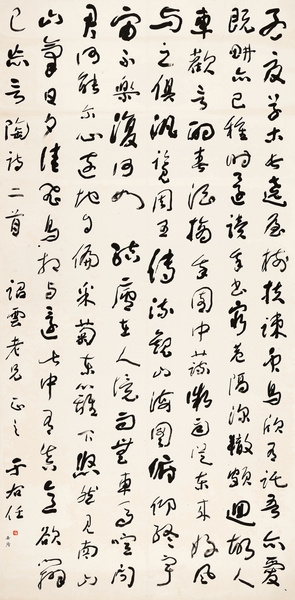 孟夏草木長遶屋樹扶疎眾鳥欣有託吾亦愛
既耕亦已種時還讀我書窮巷隔深轍頗迴故人
車歡言酌春酒摘我園中蔬微雨從東來好風
與之俱汎覽周王傳流觀山海圖俯仰終宇
宙不樂復何如 結廬在人境而無車馬喧問
君何能爾心遠地自偏采菊東籬下悠然見南山
山氣日夕佳飛鳥相與還此中有真意欲辯
已忘言陶詩二首 詔雲老兄正之 于右任